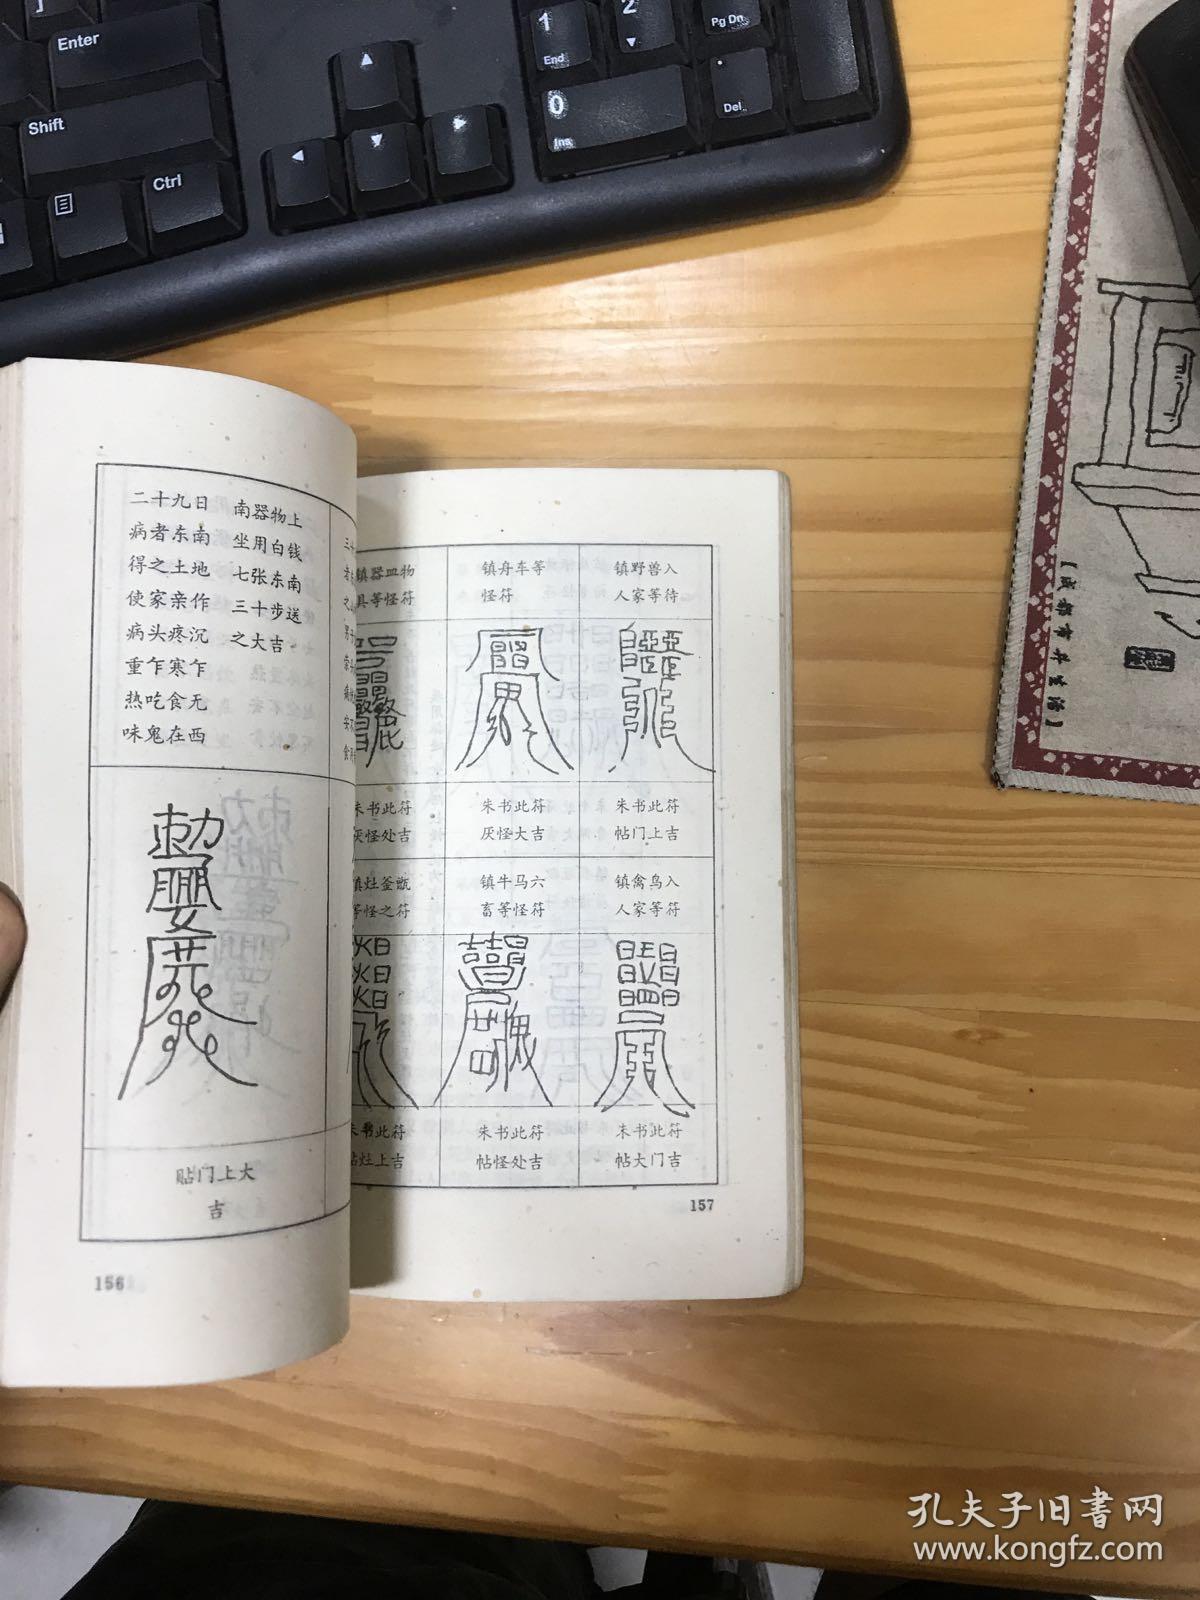 ]
Enter
Shift
Ctrl
1
End
2
Pg Dn
0
Ins
.
Del
【成都市井生活】
二十九日
病者东南
得之土地
使家亲作
病头疼沉
重乍寒乍
热吃食无
味鬼在西
南器物上
坐用白钱
七张东南
三十步送
之大吉
贴门上大
吉
156
镇器皿物
具等怪符
镇舟车等
怪符
镇野兽入
人家等待
朱书此符
厌怪处吉
朱书此符
厌怪大吉
朱书此符
帖门上吉
镇灶釜甑
等怪之符
镇牛马六
畜等怪符
镇禽鸟入
人家等符
朱书此符
帖灶上吉
朱书此符
帖怪处吉
朱书此符
帖大门吉
157
孔夫子旧书网
www.kongfz.com